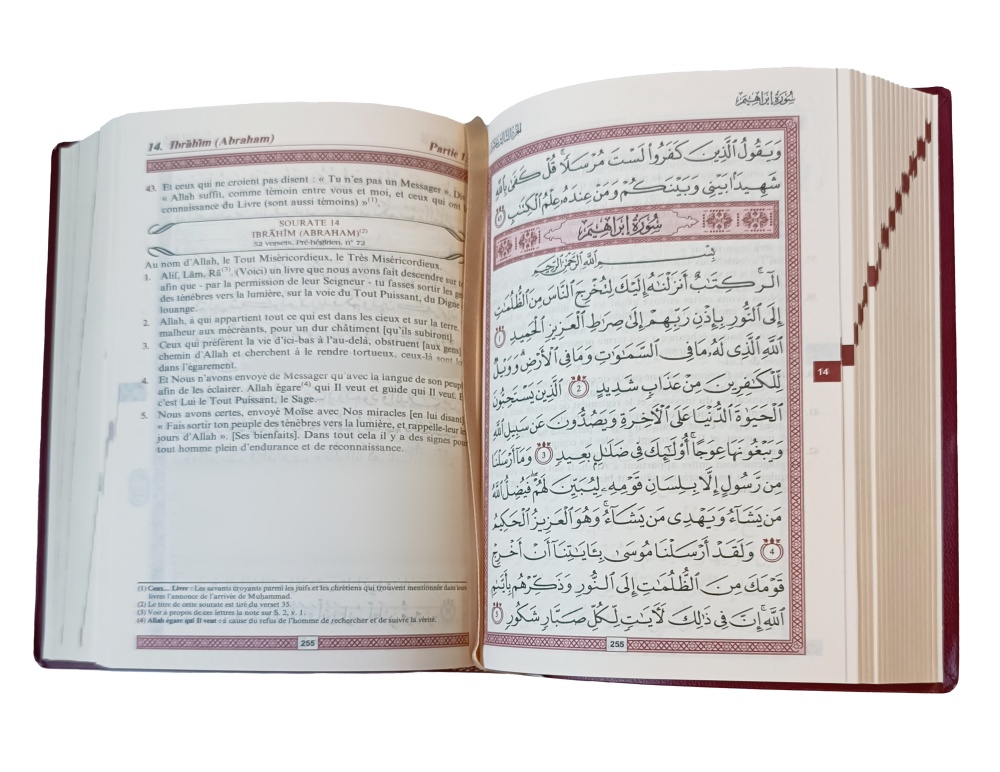 14. Ibrāhīm (Abraham)
Partie 1
43. Et ceux qui ne croient pas disent : « Tu n'es pas un Messager ».
« Allah suffit, comme témoin entre vous et moi, et ceux qui ont
connaissance du Livre (sont aussi témoins) »(1).
SOURATE 14
IBRĀHĪM (ABRAHAM)(2)
52 versets, Pré-hégirien, n° 72
Au nom d'Allah, le Tout Miséricordieux, le Très Miséricordieux.
1. Alif, Lām, Rā(3). (Voici) un livre que nous avons fait descendre sur
afin que - par la permission de leur Seigneur - tu fasses sortir les
des ténèbres vers la lumière, sur la voie du Tout Puissant, du Digne
louange.
2. Allah, à qui appartient tout ce qui est dans les cieux et sur la terre.
malheur aux mécréants, pour un dur châtiment [qu'ils subiront].
3. Ceux qui préfèrent la vie d'ici-bas à l'au-delà, obstruent [aux gens]
chemin d'Allah et cherchent à le rendre tortueux, ceux-là sont
dans l'égarement.
4. Et Nous n'avons envoyé de Messager qu'avec la langue de son peuple
afin de les éclairer. Allah égare(4) qui Il veut et guide qui Il veut. E
c'est Lui le Tout Puissant, le Sage. –
5. Nous avons certes, envoyé Moïse avec Nos miracles [en lui disant
« Fais sortir ton peuple des ténèbres vers la lumière, et rappelle-leur
jours d'Allah ». [Ses bienfaits]. Dans tout cela il y a des signes pour
tout homme plein d'endurance et de reconnaissance.
(1) Ceux... Livre : Les savants croyants parmi les juifs et les chrétiens qui trouvent mentionnée dans leurs
livres l'annonce de l'arrivée de Muḥammad.
(2) Le titre de cette sourate est tiré du verset 35.
(3) Voir à propos de ces lettres la note sur S. 2, v. 1.
(4) Allah égare qui Il veut : à cause du refus de l'homme de rechercher et de suivre la vérité.
255
سُورَةُ إِبْرَاهِيمَ
وَيَقُولُ ٱلَّذِينَ كَفَرُوا۟ لَسْتَ مُرْسَلًا ۚ قُلْ كَفَىٰ بِٱللَّهِ
شَهِيدًۢا بَيْنِى وَبَيْنَكُمْ وَمَنْ عِندَهُۥ عِلْمُ ٱلْكِتَٰبِ ٤٣
سُورَةُ إِبْرَاهِيمَ
بِسْمِ ٱللَّهِ ٱلرَّحْمَٰنِ ٱلرَّحِيمِ
الٓر ۚ كِتَٰبٌ أَنزَلْنَٰهُ إِلَيْكَ لِتُخْرِجَ ٱلنَّاسَ مِنَ ٱلظُّلُمَٰتِ
إِلَى ٱلنُّورِ بِإِذْنِ رَبِّهِمْ إِلَىٰ صِرَٰطِ ٱلْعَزِيزِ ٱلْحَمِيدِ ١
ٱللَّهِ ٱلَّذِى لَهُۥ مَا فِى ٱلسَّمَٰوَٰتِ وَمَا فِى ٱلْأَرْضِ ۗ وَوَيْلٌ
لِّلْكَٰفِرِينَ مِنْ عَذَابٍ شَدِيدٍ ٢ ٱلَّذِينَ يَسْتَحِبُّونَ
ٱلْحَيَوٰةَ ٱلدُّنْيَا عَلَى ٱلْءَاخِرَةِ وَيَصُدُّونَ عَن سَبِيلِ ٱللَّهِ
وَيَبْغُونَهَا عِوَجًا ۚ أُو۟لَٰٓئِكَ فِى ضَلَٰلٍۭ بَعِيدٍ ٣ وَمَآ أَرْسَلْنَا
مِن رَّسُولٍ إِلَّا بِلِسَانِ قَوْمِهِۦ لِيُبَيِّنَ لَهُمْ ۖ فَيُضِلُّ ٱللَّهُ
مَن يَشَآءُ وَيَهْدِى مَن يَشَآءُ ۚ وَهُوَ ٱلْعَزِيزُ ٱلْحَكِيمُ
٤ وَلَقَدْ أَرْسَلْنَا مُوسَىٰ بِـَٔايَٰتِنَآ أَنْ أَخْرِجْ
قَوْمَكَ مِنَ ٱلظُّلُمَٰتِ إِلَى ٱلنُّورِ وَذَكِّرْهُم بِأَيَّىٰمِ
ٱللَّهِ ۚ إِنَّ فِى ذَٰلِكَ لَءَايَٰتٍ لِّكُلِّ صَبَّارٍ شَكُورٍ ٥
255
14